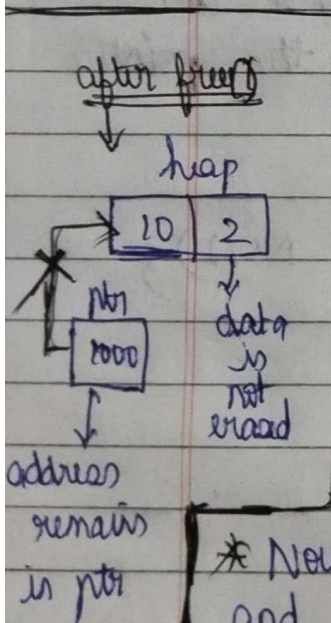 after free()
heap
10 2
ptr
1000
data
is
not
erased
address
remains
in ptr
* Nou
and